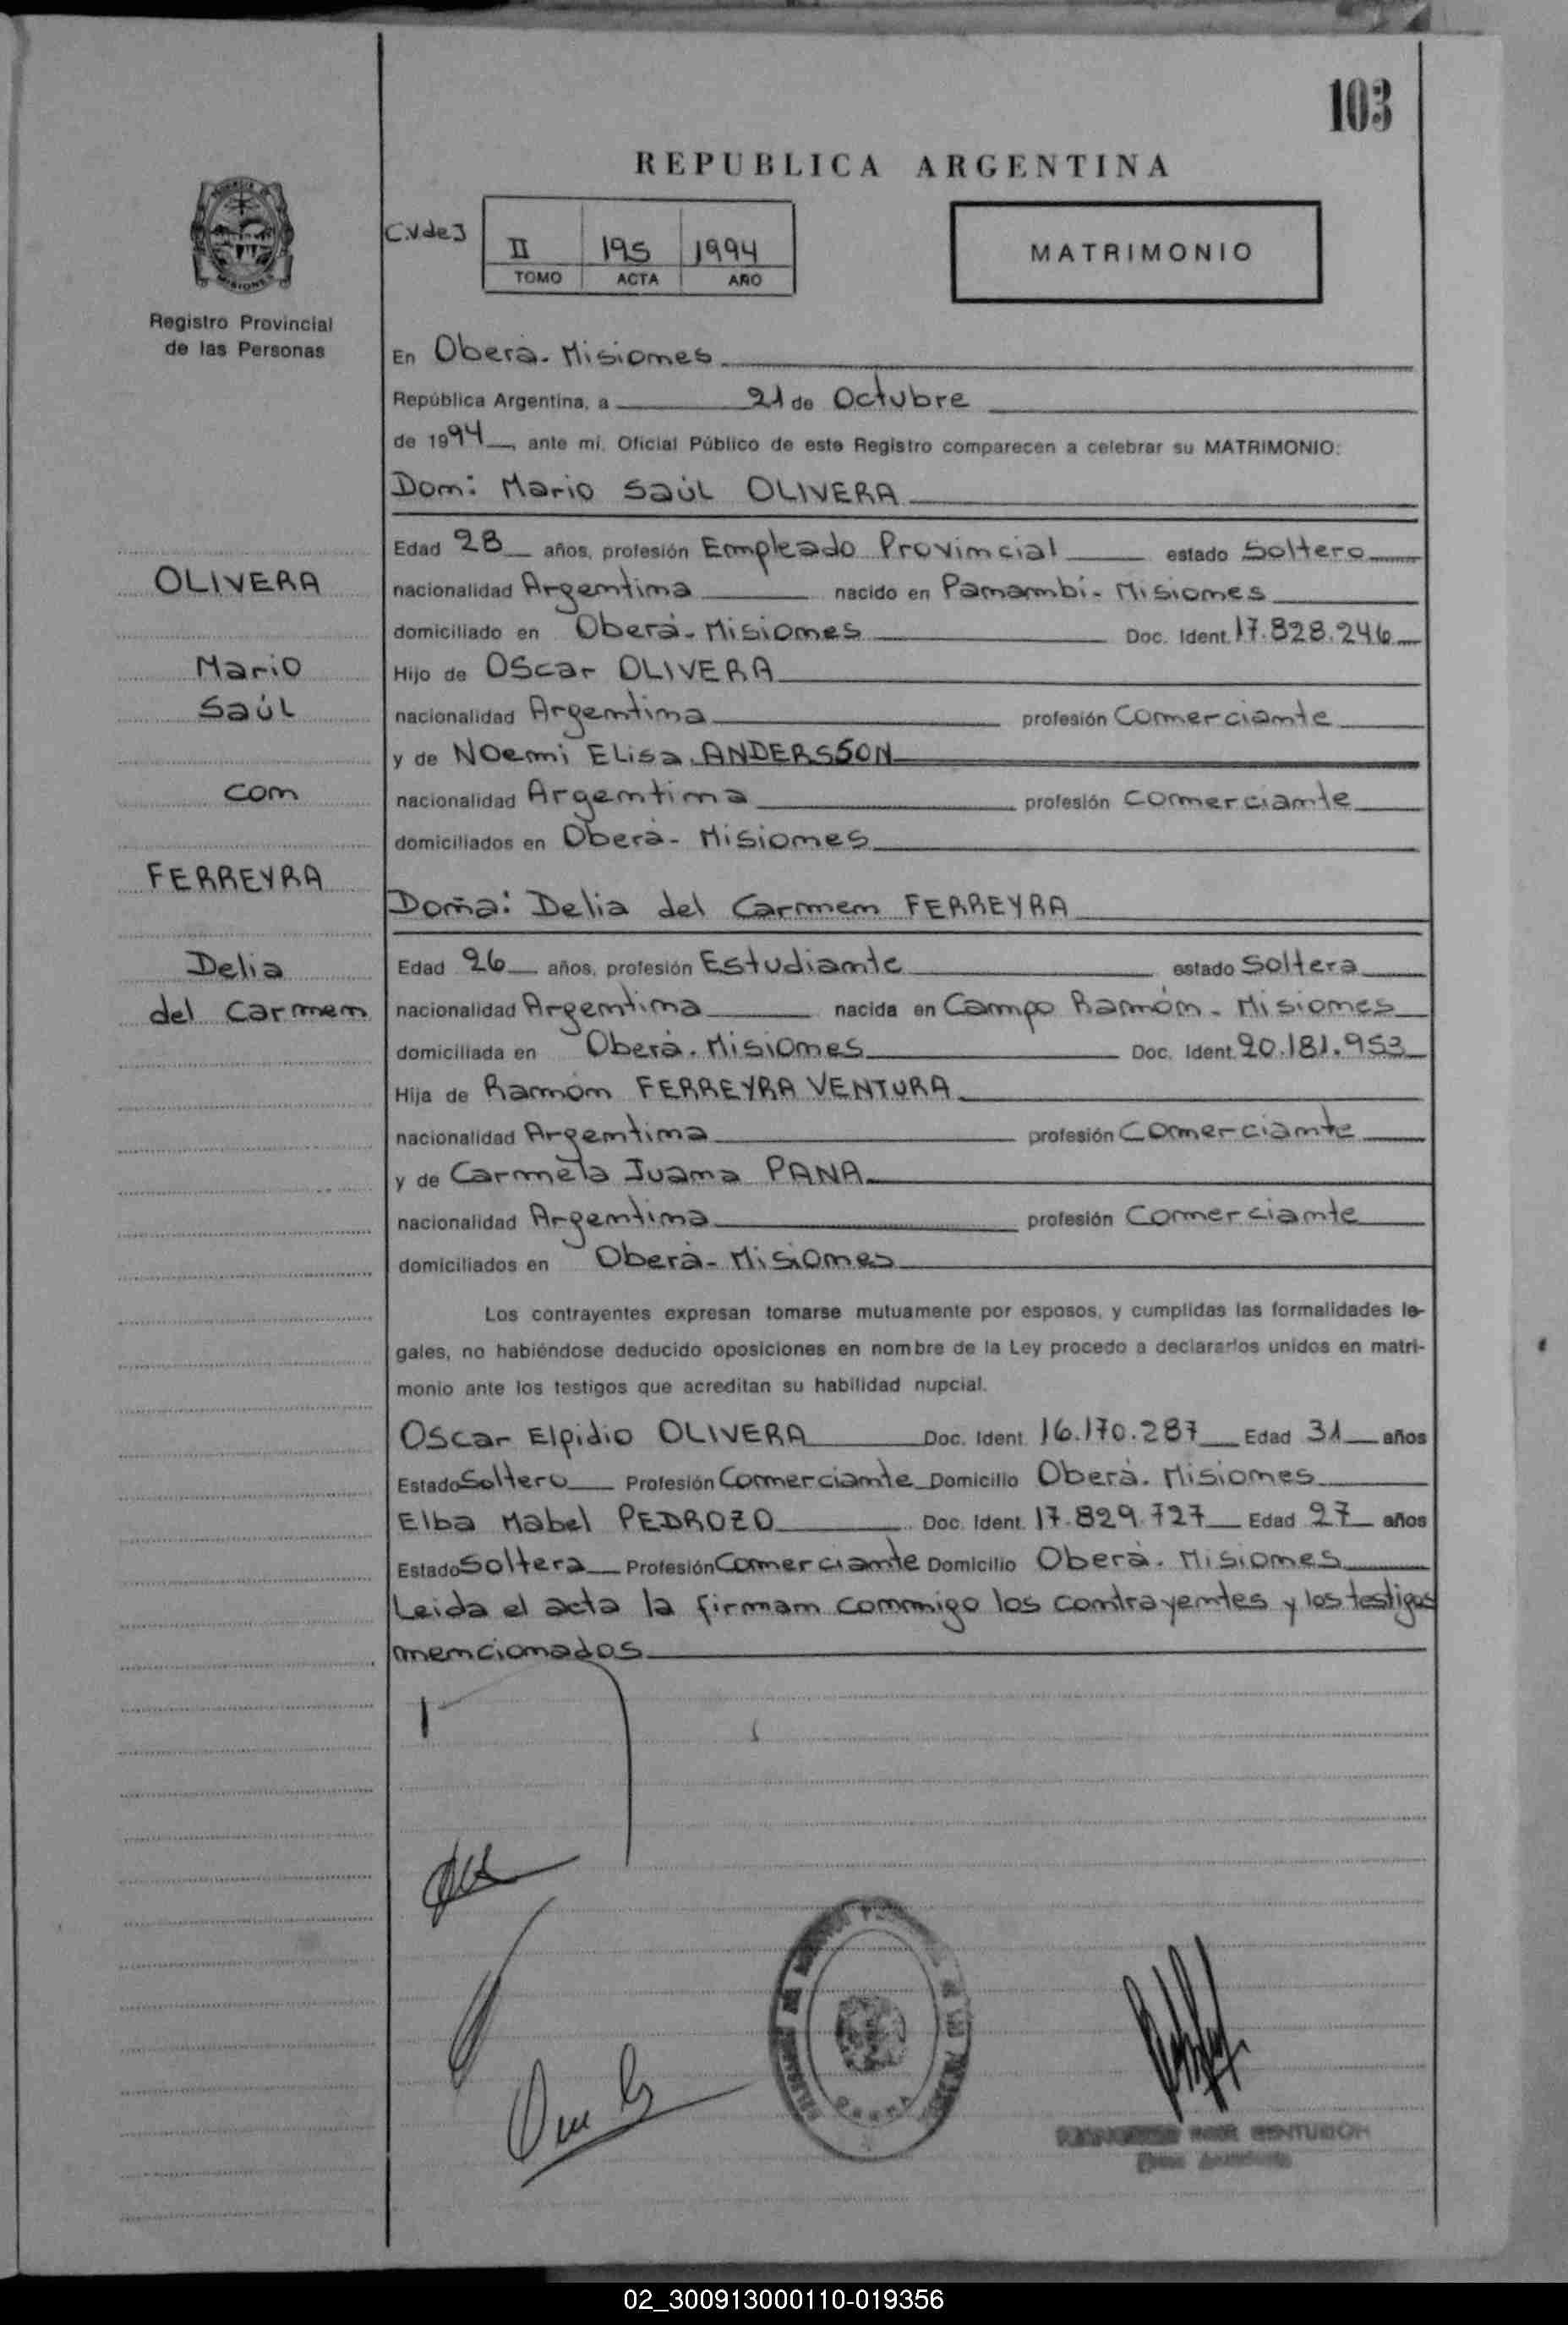 103
REPUBLICA ARGENTINA
C.V de J
II 195 1994
TOMO ACTA AÑO
MATRIMONIO
MISIONES
Registro Provincial
de las Personas
En Oberá - Misiones
República Argentina, a 21 de Octubre
de 1994, ante mí, Oficial Público de este Registro comparecen a celebrar su MATRIMONIO:
Don: Mario Saúl OLIVERA
Edad 28 años, profesión Empleado Provincial estado Soltero
nacionalidad Argentina nacido en Panambí - Misiones
domiciliado en Oberá - Misiones Doc. Ident. 17.828.246
Hijo de Oscar OLIVERA
nacionalidad Argentina profesión Comerciante
y de Noemi Elisa ANDERSSON
nacionalidad Argentina profesión Comerciante
domiciliados en Oberá - Misiones
Doña: Delia del Carmen FERREYRA
Edad 26 años, profesión Estudiante estado Soltera
nacionalidad Argentina nacida en Campo Ramón - Misiones
domiciliada en Oberá - Misiones Doc. Ident. 20.181.953
Hija de Ramón FERREYRA VENTURA
nacionalidad Argentina profesión Comerciante
y de Carmela Juana PANA
nacionalidad Argentina profesión Comerciante
domiciliados en Oberá - Misiones
OLIVERA
Mario
Saúl
con
FERREYRA
Delia
del Carmen
Los contrayentes expresan tomarse mutuamente por esposos, y cumplidas las formalidades le-
gales, no habiéndose deducido oposiciones en nombre de la Ley procedo a declararlos unidos en matri-
monio ante los testigos que acreditan su habilidad nupcial.
Oscar Elpidio OLIVERA Doc. Ident. 16.170.287 Edad 31 años
Estado Soltero Profesión Comerciante Domicilio Oberá - Misiones
Elba Mabel PEDROZO Doc. Ident. 17.829.727 Edad 27 años
Estado Soltera Profesión Comerciante Domicilio Oberá - Misiones
Leida el acta la firman conmigo los contrayentes y los testigos
mencionados
CENTURION
02_300913000110-019356